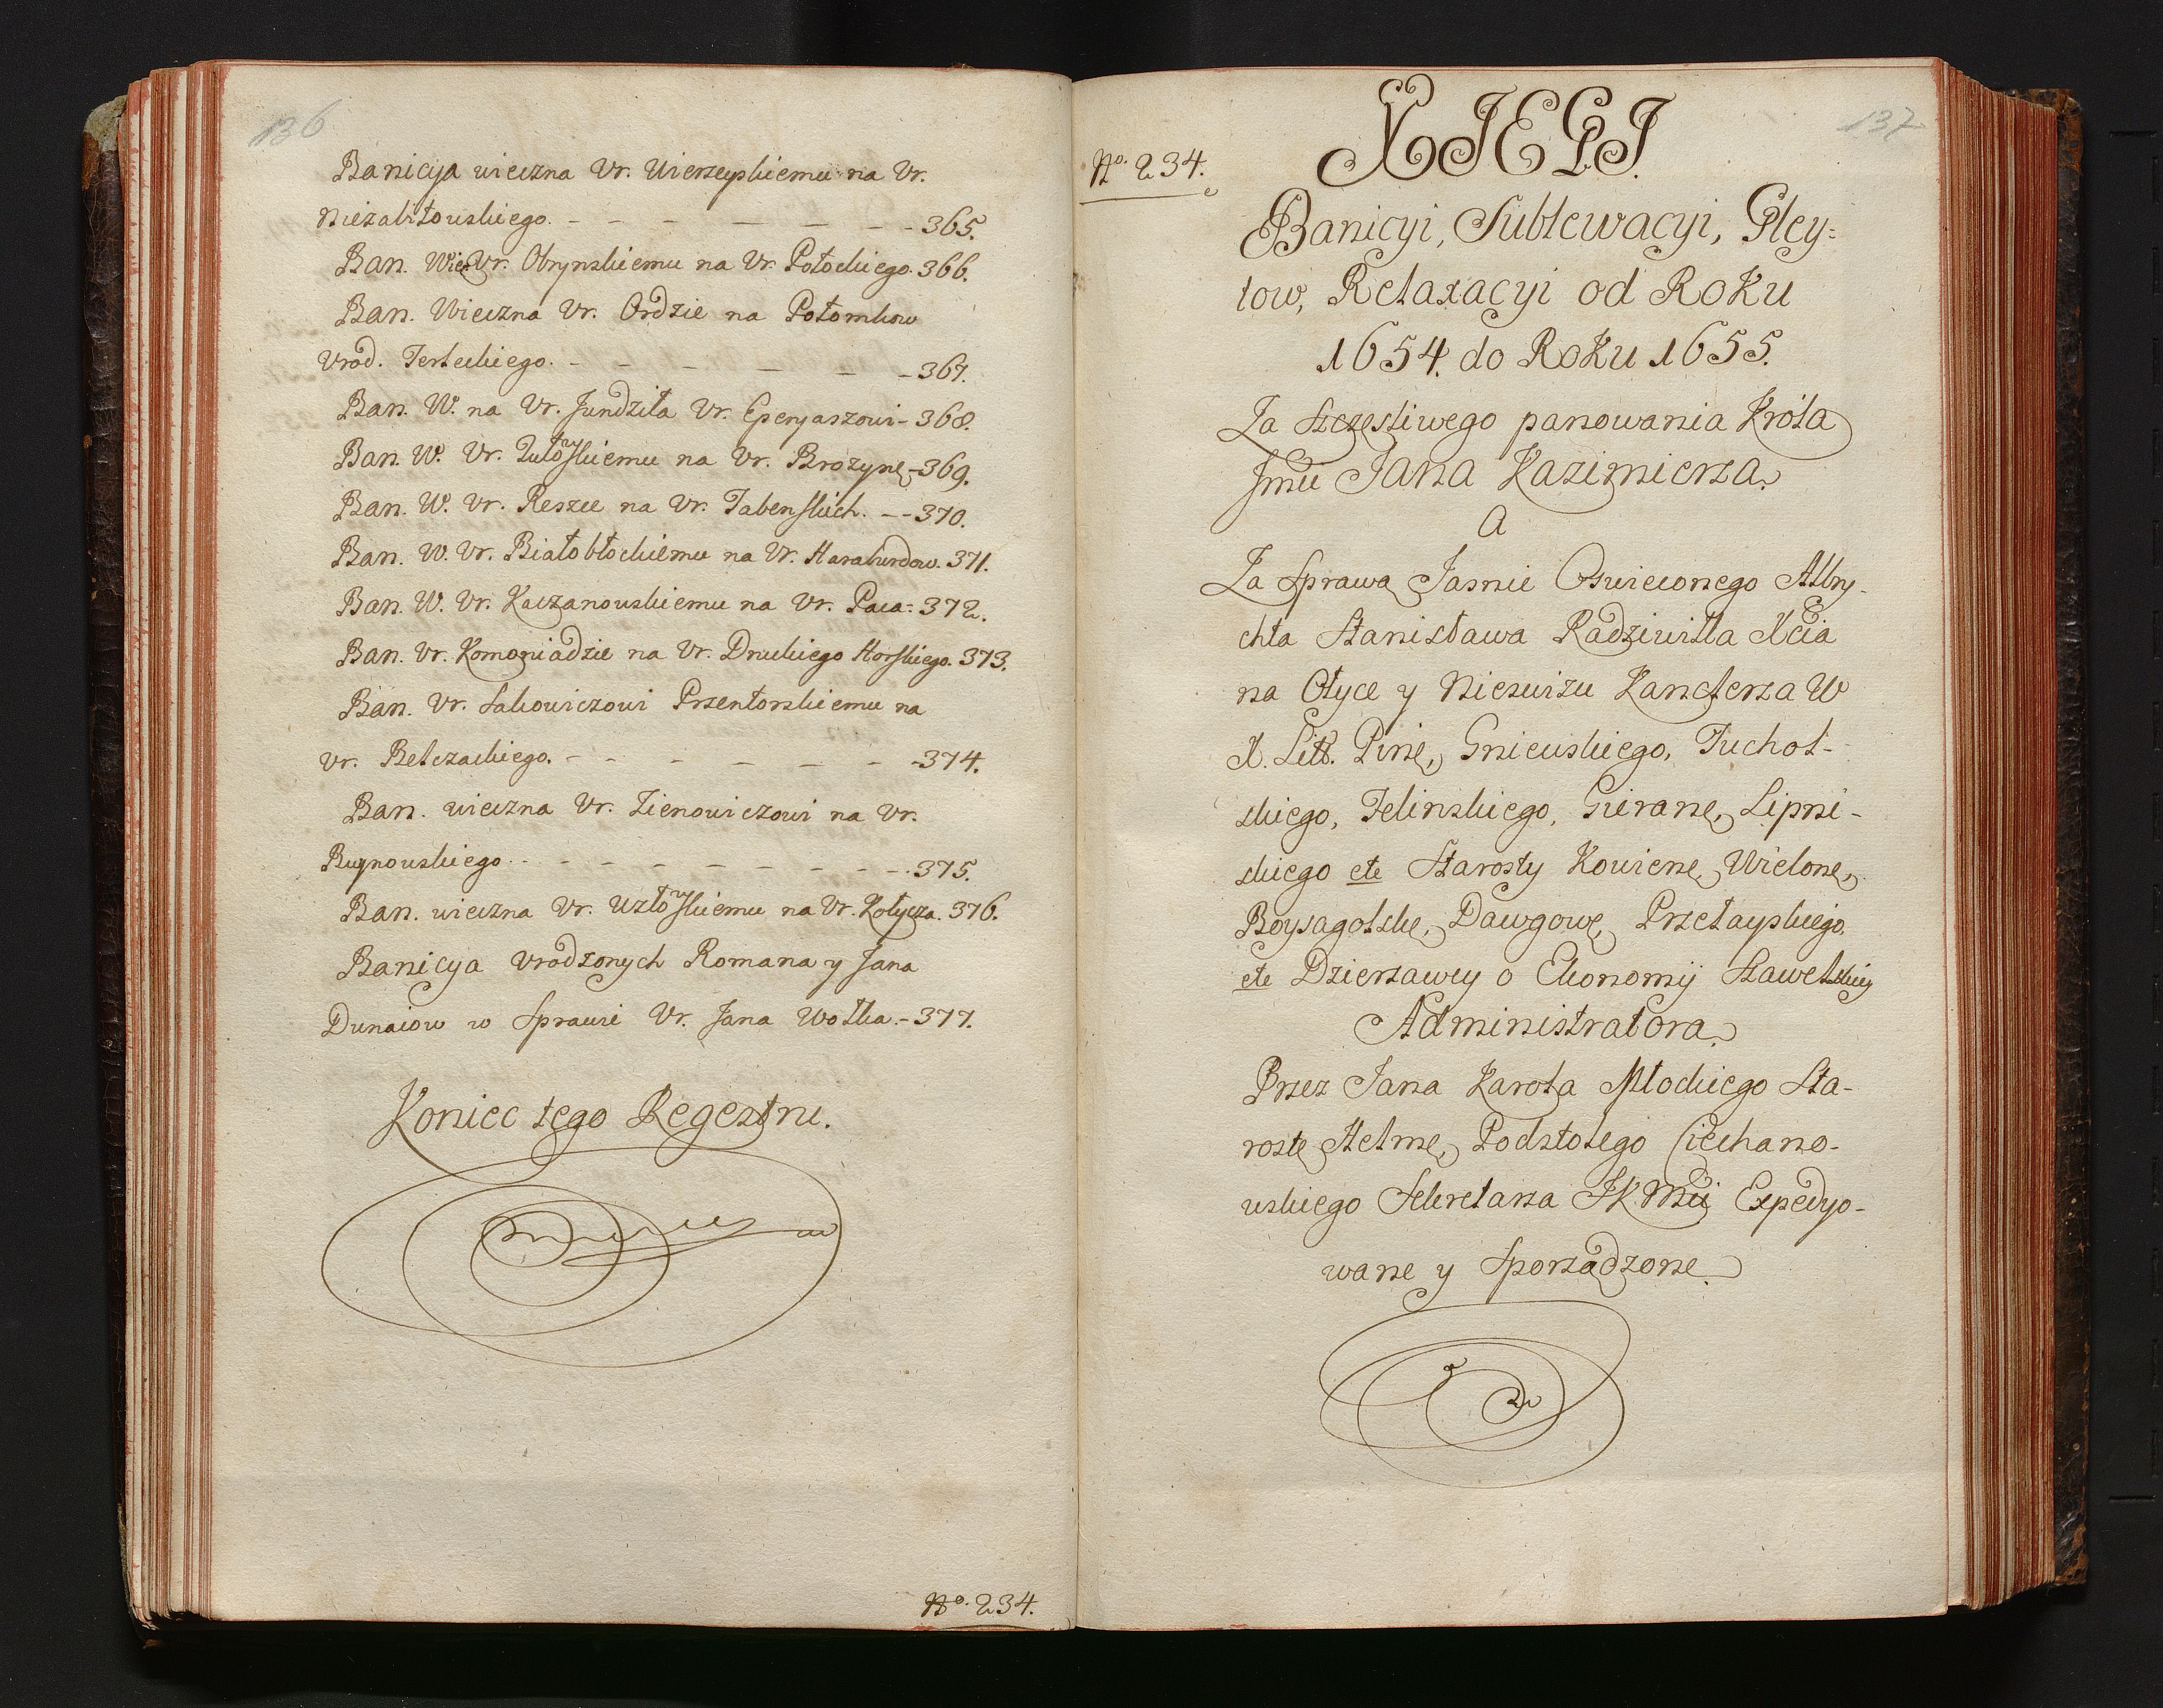 136
Banicya wieczna Vr. Wierzeyskiemu na Vr.
Niezabitowskiego. - - - - - - - 365.
Ban. Wiecz Vr. Obrynskiemu na Vr. Potockiego. 366.
Ban. Wieczna Vr. Ordzie na Potomkow
Vrod. Terleckiego. - - - - - - 367.
Ban. W. na Vr. Jundziła Vr. Eperyaszowi - 368.
Ban. W. Vr. Lutowskiemu na Vr. Brozynę - 369.
Ban. W. Vr. Reszce na Vr. Tabenskich. - - 370.
Ban. W. Vr. Białobłockiemu na Vr. Haraburdow. 371.
Ban. W. Vr. Kaczanowskiemu na Vr. Paca - 372.
Ban. Vr. Komoniadzie na Vr. Druckiego Horskiego. 373.
Ban. Vr. Sakowiczowi Przentorskiemu na
Vr. Betczackiego. - - - - - - - 374.
Ban. wieczna Vr. Zienowiczowi na Vr.
Buynowskiego - - - - - - - - 375.
Ban. wieczna Vr. Uzłowskiemu na Vr. Kotycza. 376.
Banicya Vrodzonych Romana y Jana
Dunaiow w Sprawie Vr. Jana Wołka. - 377.
Koniec tego Regestru.
No. 234.
137
No. 234.
XIĘGI.
Banicyi, Sublewacyi, Gley-
tow, Relaxacyi od Roku
1654. do Roku 1655.
Za Szczęsliwego panowania Króla
Jmci Jana Kazimierza.
A
Za Sprawą Jasnie Oswieconego Albry-
chta Stanisława Radziwiłła Xcia
na Ołyce y Nieswizu Kanclerza W
X. Litt. Pine, Gniewskiego, Tuchol-
skiego, Felinskiego, Gierane, Lipni-
skiego etc Starosty Kowiene, Wielone,
Boysagolske, Dawgowe, Przełayskiego
etc Dzierzawcy o Ekonomij Szawelskiey
Administratora.
Przez Jana Karola Młockiego Sta-
roste Helme, Podstolego Ciechano-
wskiego Sekretarza JKMci Expedyo-
wane y Sporządzone.